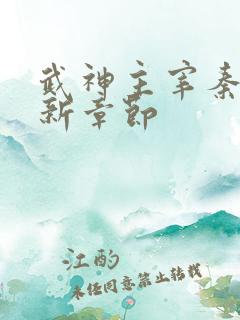 武神主宰秦
新章节
江酌
未经同意禁止转载